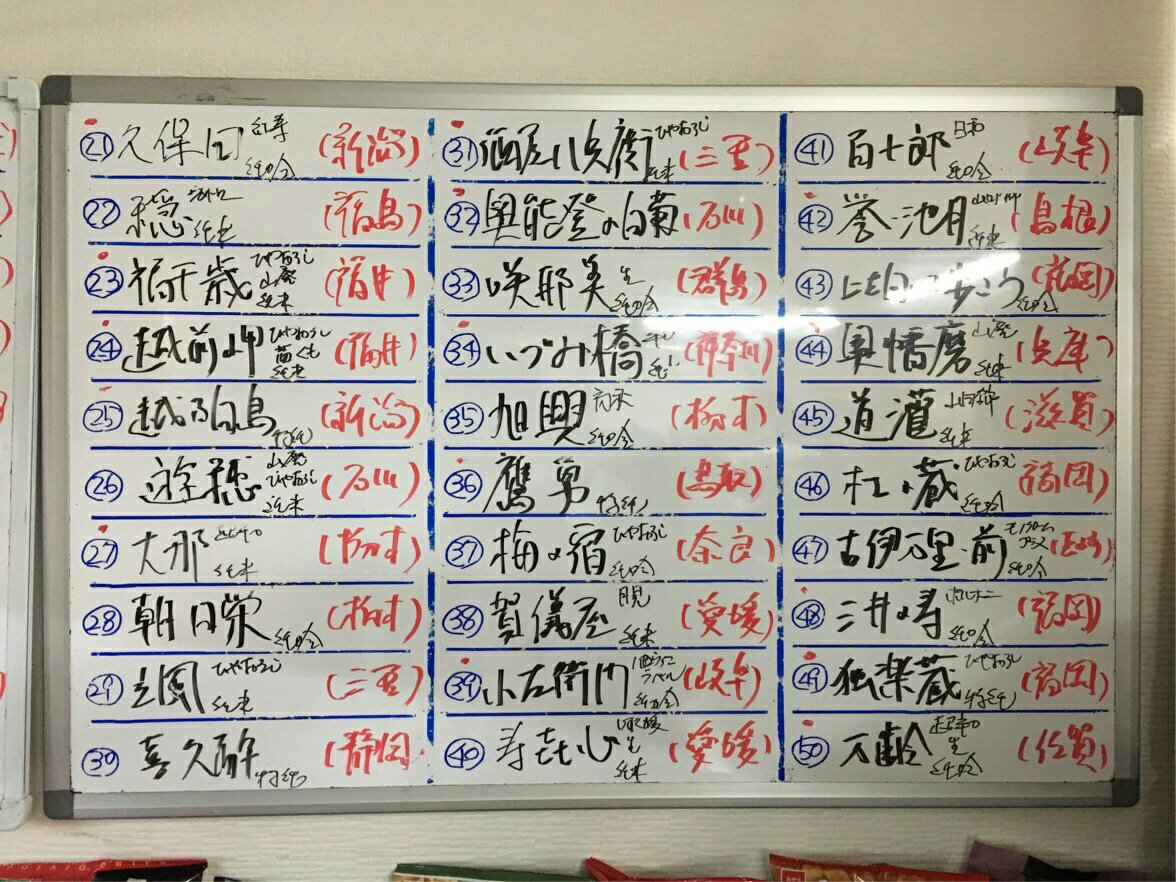 ㉑ 久保田 紅寿 純吟 (新潟)
㉒ 穏 純米 (福島)
㉓ 福千歳 ひやおろし 山廃 純米 (福井)
㉔ 越前岬 ひやおろし 純米 (福井)
㉕ 越乃白鳥 特純 (新潟)
㉖ 遊穂 山廃 ひやおろし 純米 (石川)
㉗ 大那 純米 (栃木)
㉘ 朝日栄 純吟 (栃木)
㉙ ひやおろし 純米 (三重)
㉚ 喜久酔 特純 (静岡)
㉛ 酒屋八兵衛 ひやおろし 純米 (三重)
㉜ 奥能登の白菊 (石川)
㉝ 咲耶美 生 純吟 (群馬)
㉞ いづみ橋 (神奈川)
㉟ 旭興 純吟 (栃木)
㊱ 鷹勇 特純 (鳥取)
㊲ 梅の宿 ひやおろし 純吟 (奈良)
㊳ 賀儀屋 純米 (愛媛)
㊴ 小左衛門 純吟 (岐阜)
㊵ 寿喜心 生 純米 (愛媛)
㊶ 百十郎 純吟 (岐阜)
㊷ 誉池月 純米 (島根)
㊸ 純吟 (福岡)
㊹ 奥播磨 山廃 純米 (兵庫)
㊺ 道灌 山田錦 純米 (滋賀)
㊻ 杜の蔵 ひやおろし 純吟 (福岡)
㊼ 古伊万里 前 純吟
㊽ 三井の寿 純吟 (福岡)
㊾ 独楽蔵 ひやおろし 特純 (福岡)
㊿ 万齢 生 純吟 (佐賀)